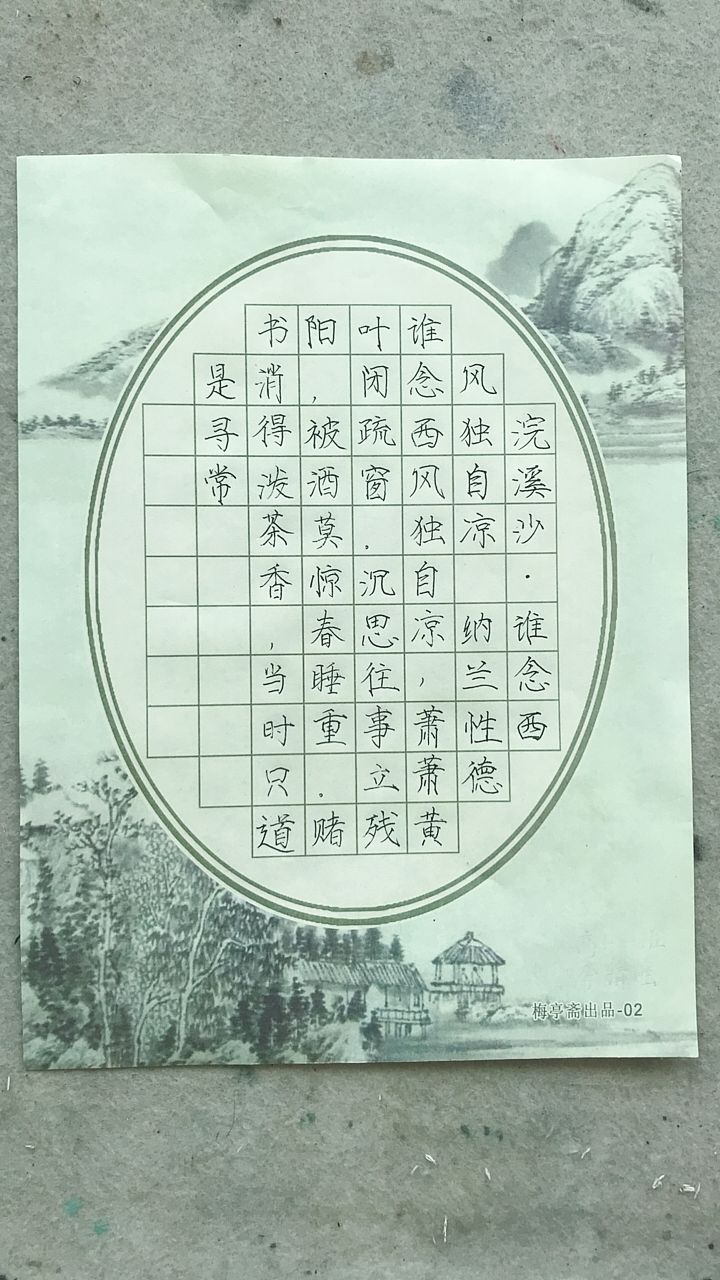 浣溪沙·谁念西
风独自凉 纳兰性德
谁念西风独自凉，萧萧黄
叶闭疏窗。沉思往事立残
阳，被酒莫惊春睡重。赌
书消得泼茶香，当时只道
是寻常
梅亭斋出品-02